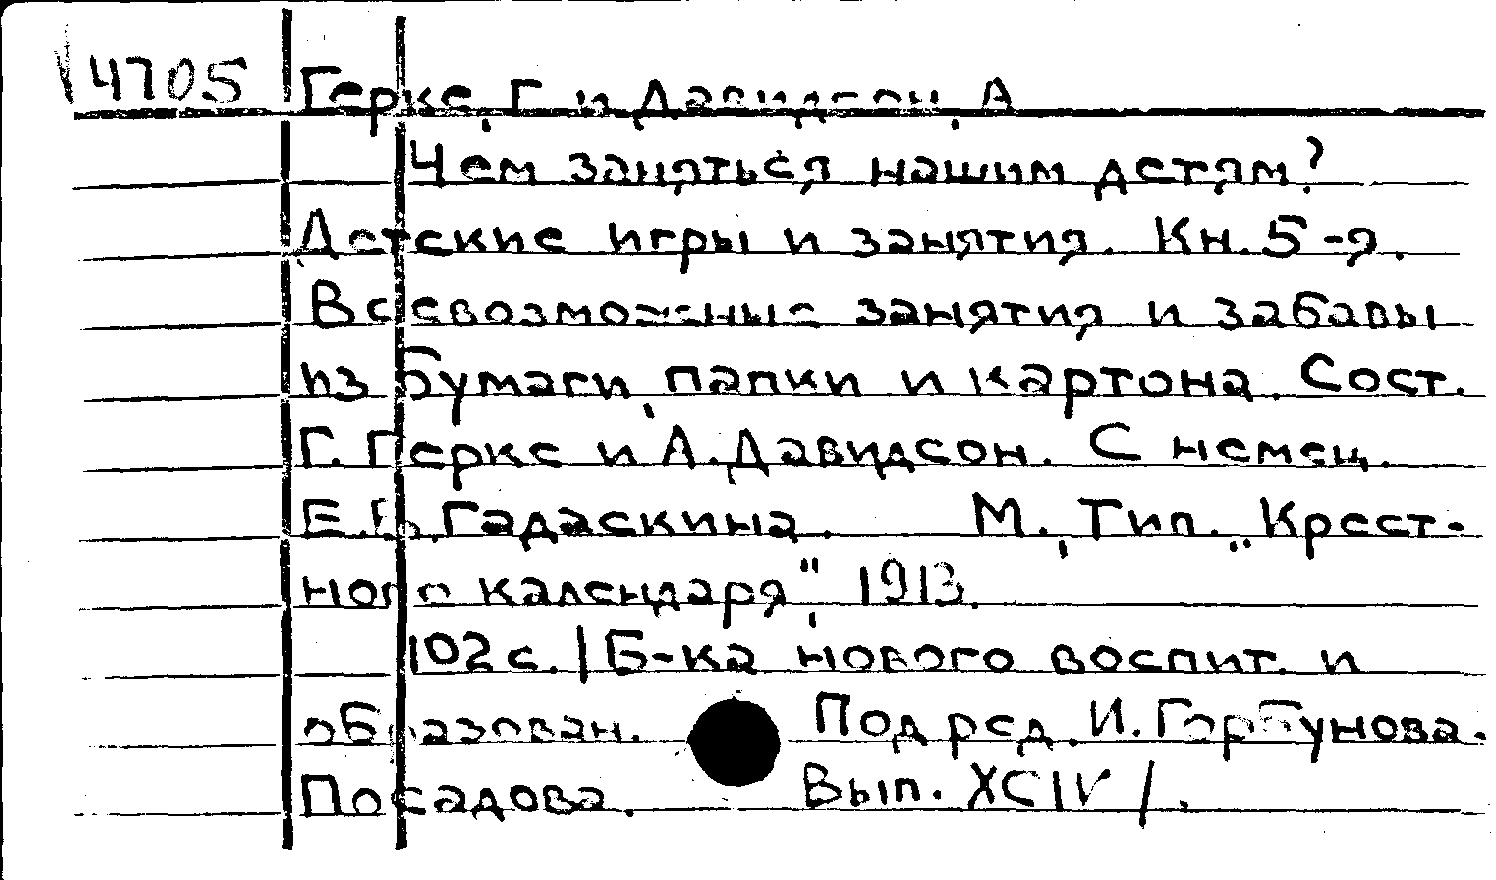 14705 Герке, Г. и Давидсон, А.
Чем заняться нашим детям?
Детские игры и занятия. Кн. 5-я.
Всевозможные занятия и забавы
из бумаги, папки и картона. Сост.
Г. Герке и А. Давидсон. С немец.
Е.Б. Гадаскина. М., Тип. „Крест-
ного календаря", 1913.
102 с. /Б-ка нового воспит. и
образован. Под ред. И. Горбунова-
Посадова. Вып. XCIV/.